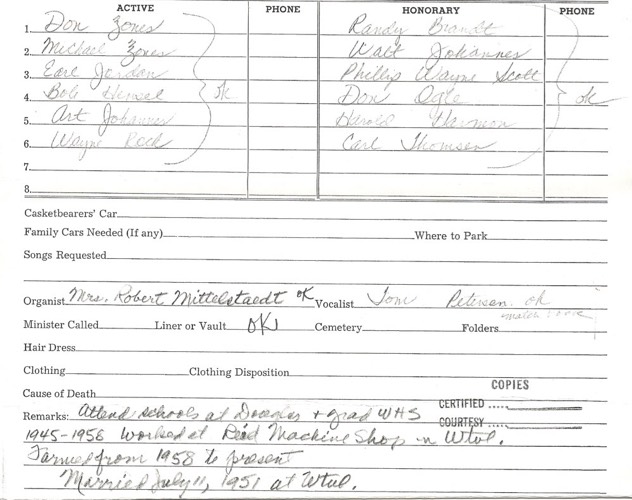 ACTIVE PHONE HONORARY PHONE
1. Don Zones Randy Brandt
2. Michael Zones Walt Johannes
3. Earl Jordan Phillip Wayne Scott
4. Bob Hensel ok Don Ogle ok
5. Art Johannes Harold Harmon
6. Wayne Rock Carl Thomsen
7.
8.
Casketbearers' Car
Family Cars Needed (If any) Where to Park
Songs Requested
Organist Mrs. Robert Mittelstaedt OK Vocalist Tom Petersen ok
Minister Called Liner or Vault OK Cemetery Folders
Hair Dress
Clothing Clothing Disposition
COPIES
Cause of Death CERTIFIED
Remarks: Attend schools at Douglas + grad WHS COURTESY
1945-1958 Worked at Reid Machine Shop in Wtvl.
Farmed from 1958 to present
Married July 11, 1951 at Wtvl.